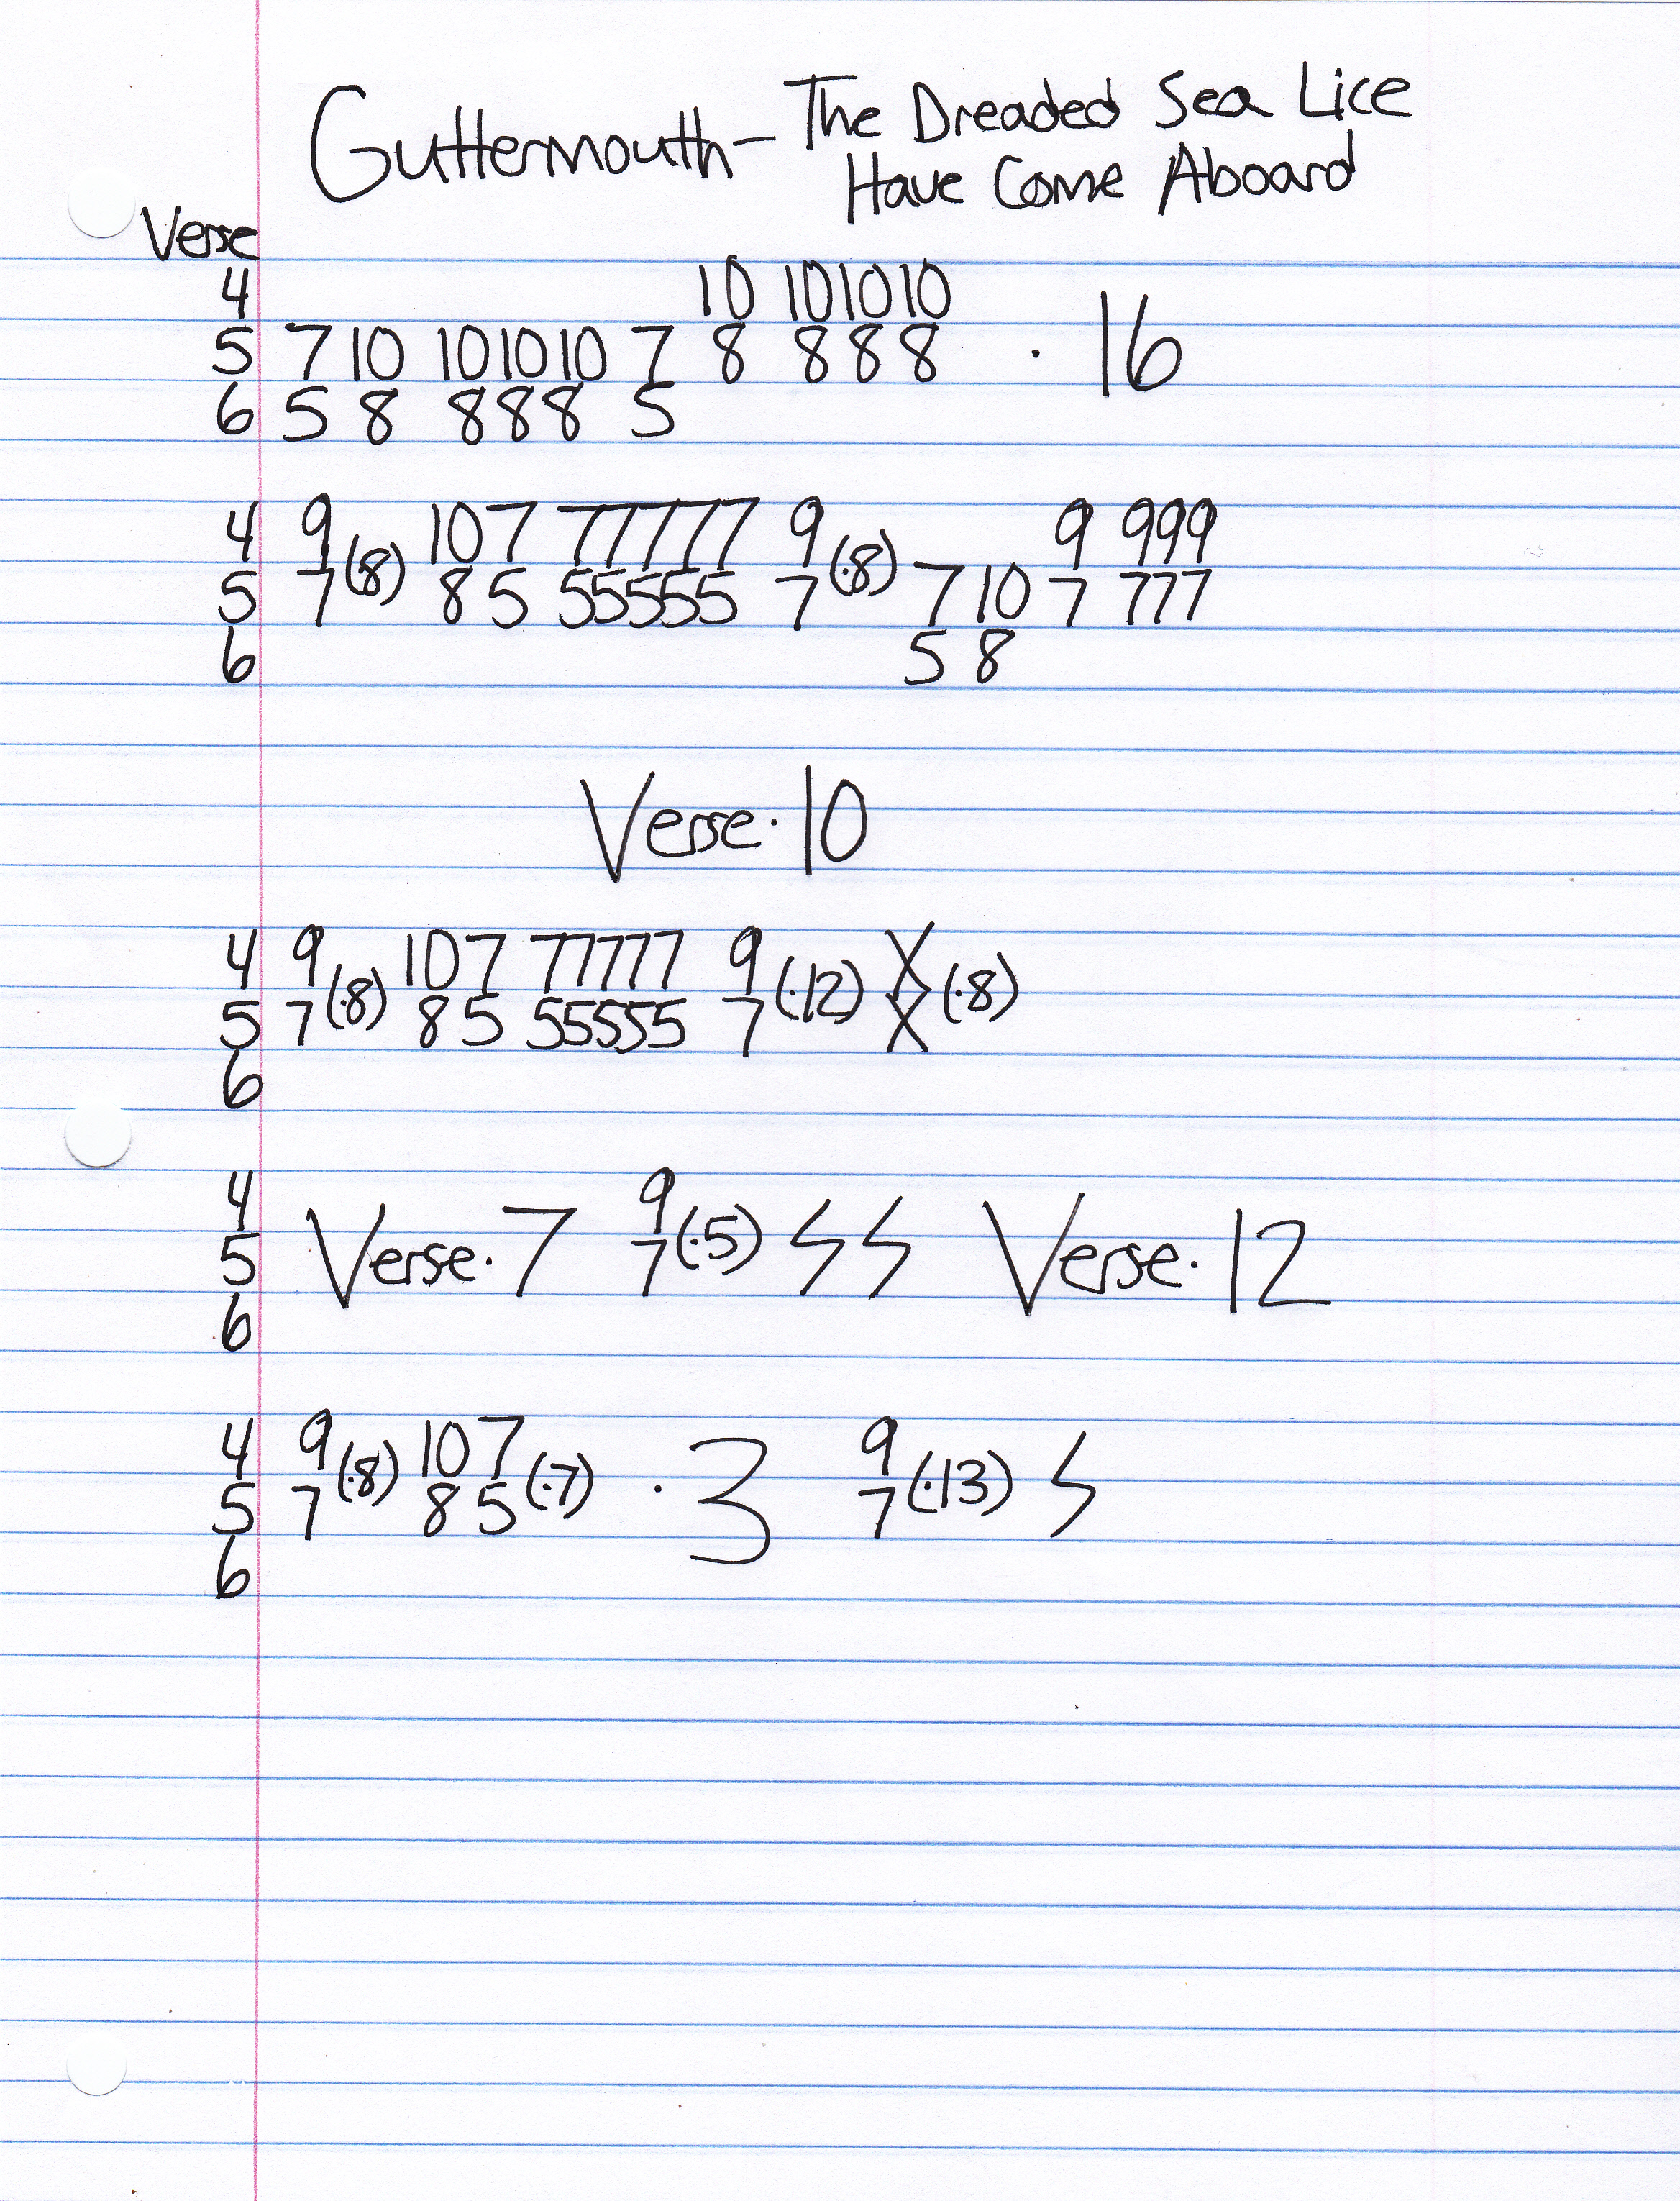 Guttermouth - The Dreaded Sea Lice
Have Come Aboard
Verse
4 10 10 10 10
5 7 10 10 10 10 7 8 8 8 8 · 16
6 5 8 8 8 8 5
4 9 (·8) 10 7 7 7 7 7 7 9 (·8) 9 9 9 9
5 7 8 5 5 5 5 5 5 7 7 10 7 7 7 7
6 5 8
Verse · 10
4 9 (·8) 10 7 7 7 7 7 7 9 (·12) X (·8)
5 7 8 5 5 5 5 5 5 7 X
6
4 9
5 Verse · 7 7 (·5) Verse · 12
6
4 9 (·8) 10 7 (·7) · 3 9 (·13)
5 7 8 5 7
6